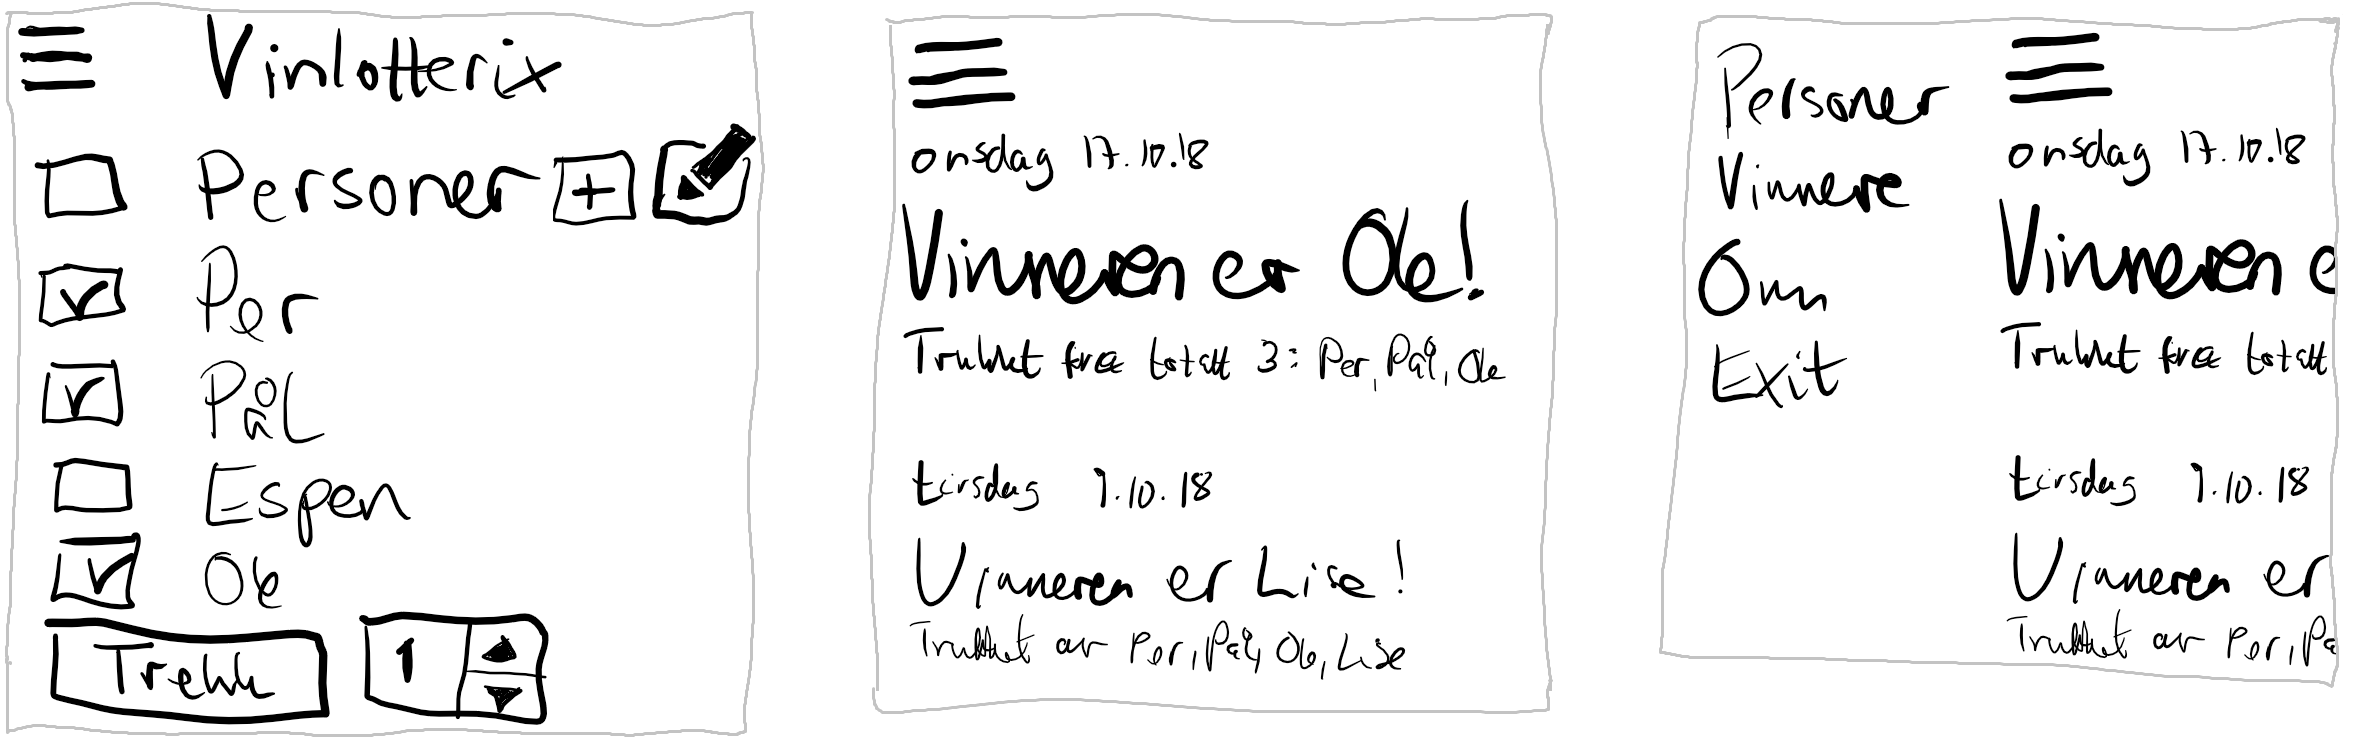 Vinlotterix
Personer +
Per
Pål
Espen
Ole
Trekk 1
onsdag 17.10.18
Vinneren er Ole!
Trukket fra totalt 3: Per, Pål, Ole
tirsdag 9.10.18
Vinneren er Lise!
Trukket av Per, Pål, Ole, Lise
Personer
Vinnere
Om
Exit
onsdag 17.10.18
Vinneren e
Trukket fra totalt
tirsdag 9.10.18
Vinneren er
Trukket av Per, På